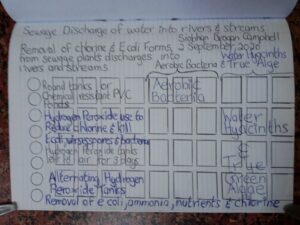 Sewage Discharge of water into rivers & streams
Stephen Campbell
Removal of chlorine & E coli Forms, 2 September 2020
from sewage plants discharges into
rivers and streams
Aerobic Bacteria
Water Hyacinths
& True Algae
Round tanks or
Chemical resistant PVC
Ponds
Aerobic
Bacteria
Hydrogen Peroxide use to
Reduce Chlorine & kill
E coli, & bacteria
Hydrogen Peroxide tanks
air for 3 days
Alternating Hydrogen
Peroxide Tanks
Water
Hyacinths
&
True
Green
Algae
Removal of e coli, ammonia, nutrients & chlorine